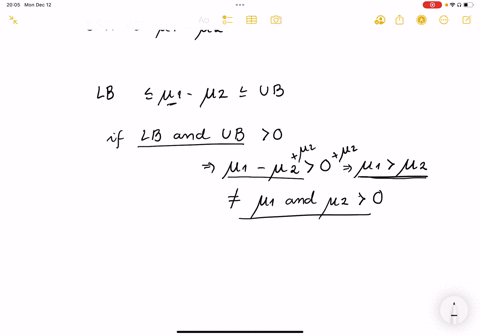 20:05 Mon Dec 12
LB ≤ μ1 - μ2 ≤ UB
if LB and UB > 0
⇒ μ1 - μ2 +μ2 > 0 +μ2 ⇒ μ1 > μ2
≠ μ1 and μ2 > 0